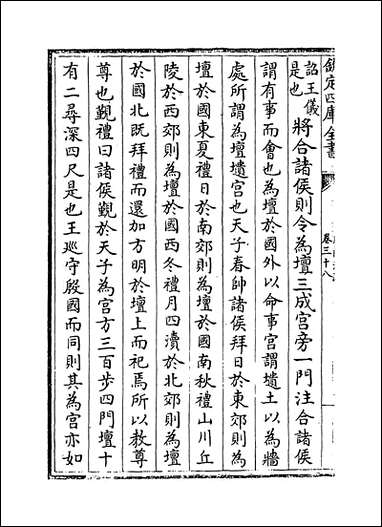 欽定四庫全書
卷三十八
詔王儀
是也
將合諸侯則令為壇三成宮旁一門注合諸侯
謂有事而會也為壇於國外以命事宮謂壝土以為牆
處所謂為壇壝宮也天子春帥諸侯拜日於東郊則為
壇於國東夏禮日於南郊則為壇於國南秋禮山川丘
陵於西郊則為壇於國西冬禮月四瀆於北郊則為壇
於國北既拜禮而還加方明於壇上而祀焉所以教尊
尊也覲禮曰諸侯覲於天子為宮方三百步四門壇十
有二尋深四尺是也王巡守殷國而同則其為宮亦如